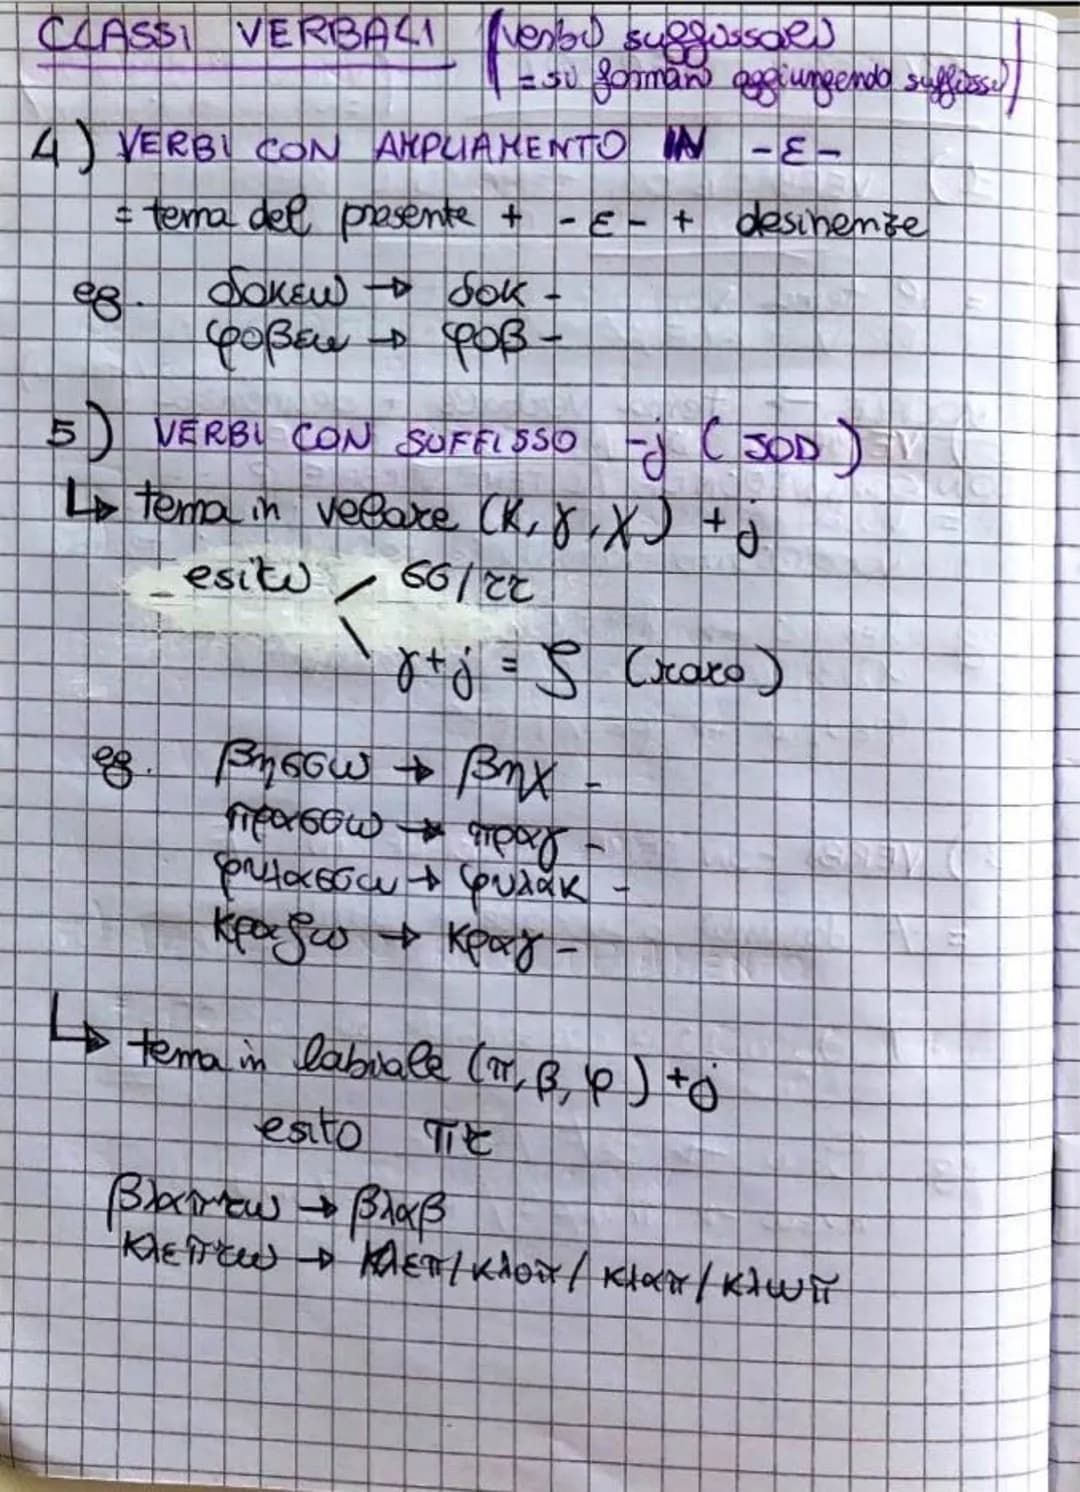 CLASSI VERBALI (verbi suffissali
= si formano aggiungendo suffissi)
4) VERBI CON AMPLIAMENTO IN -ε-
= tema del presente + -ε- + desinenze
eg. δοκεω → δοκ -
φοβεω → φοβ -
5) VERBI CON SUFFISSO -j (JOD)
↳ tema in velare (κ, γ, χ) + j
_ esito σσ/ττ
γ+j = ζ (raro)
eg. βησσω → βηχ -
πρασσω → πραγ -
φυλασσω → φυλακ -
κραζω → κραγ -
↳ tema in labiale (π, β, φ) + j
esito πτ
βλαπτω → βλαβ
κλεπτω → κλεπ/κλοπ/κλαπ/κλωπ